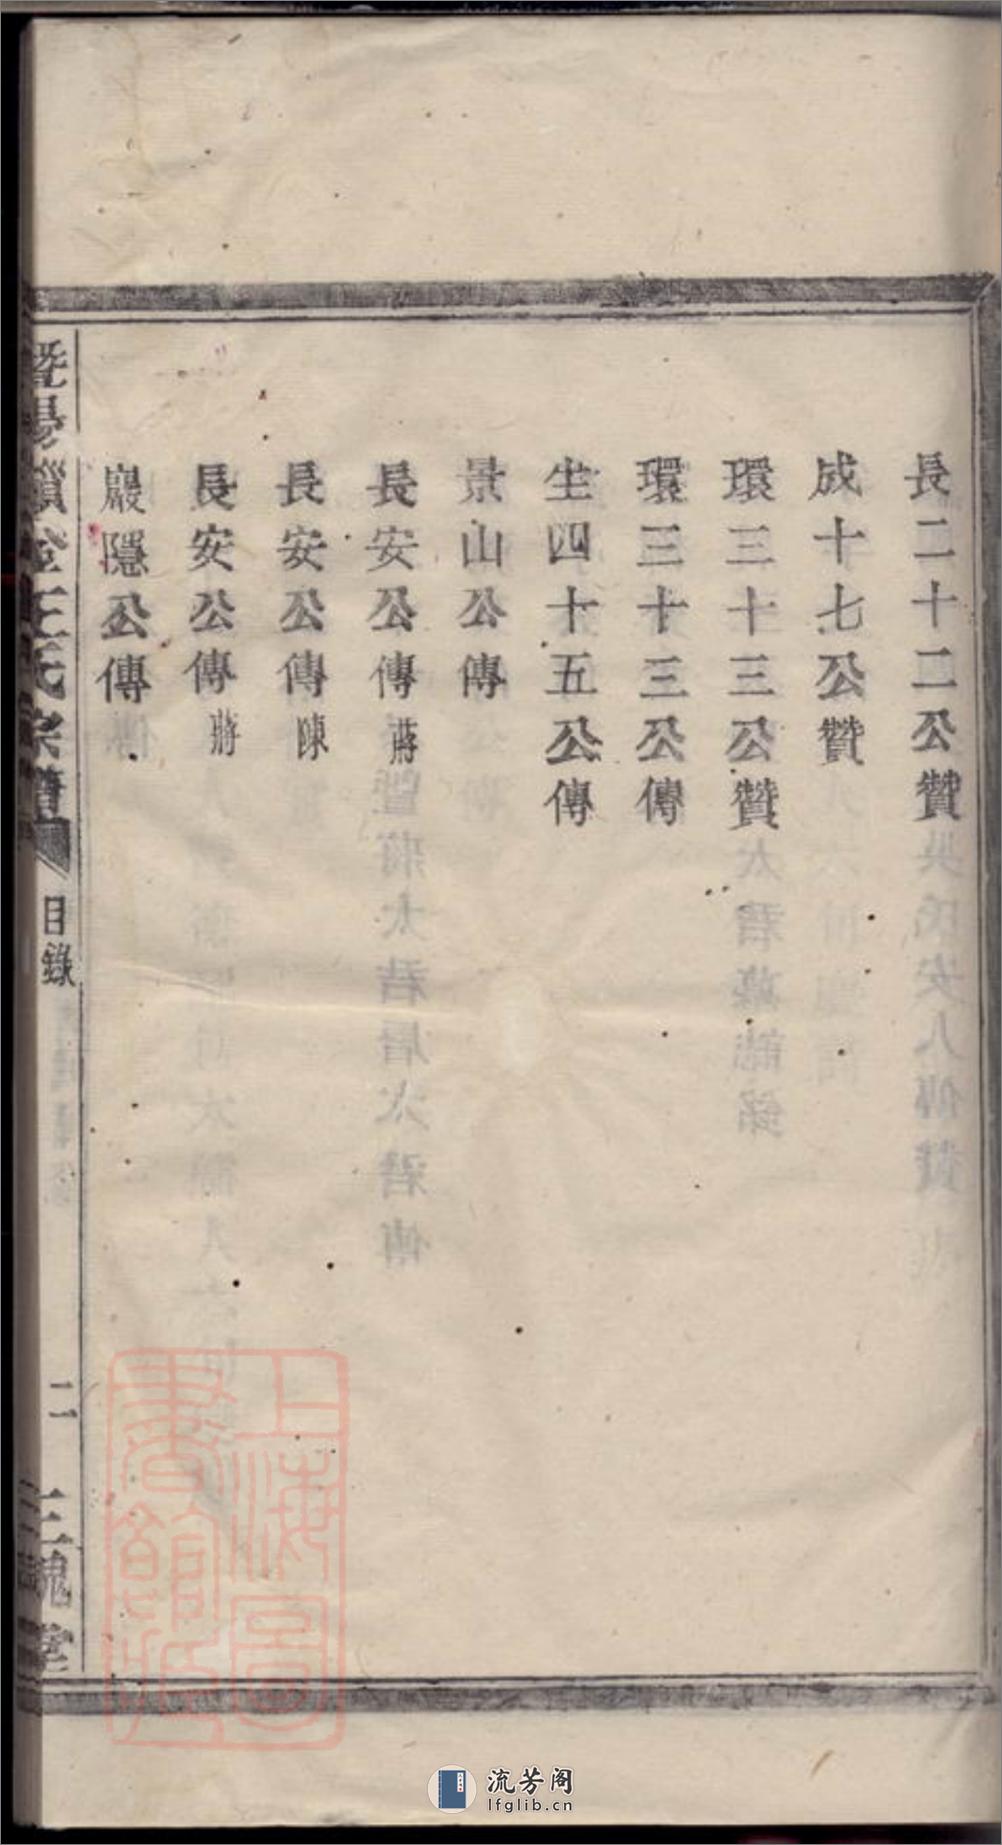 長二十二公贊
成十七公贊
環三十三公贊
環三十三公傳
生四十五公傳
景山公傳
長安公傳 蔣
長安公傳 陳
長安公傳 蔣
巖隱公傳
暨陽 金王氏宗譜
目錄
二 三槐堂
上海圖書館藏
流芳阁
lfglib.cn